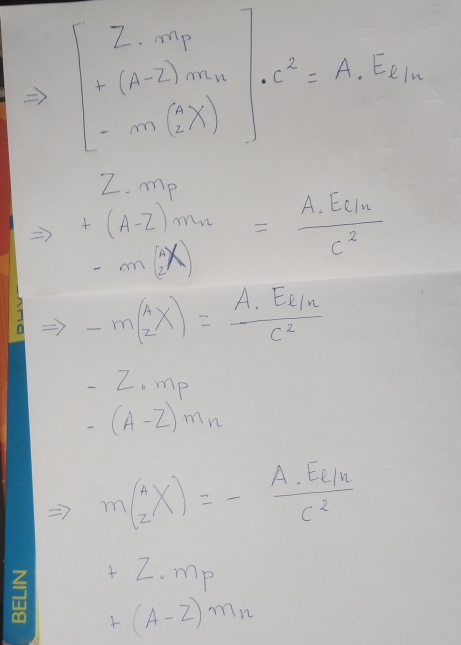 Z . mp
+ (A-Z) mn
⇒ - m (A Z X) . c² = A . Eℓ/n
Z . mp
⇒ + (A-Z) mn = A . Eℓ/n / c²
- m (A Z X)
⇒ - m (A Z X) = A . Eℓ/n / c²
- Z . mp
- (A-Z) mn
⇒ m (A Z X) = - A . Eℓ/n / c²
+ Z . mp
+ (A-Z) mn
BELIN